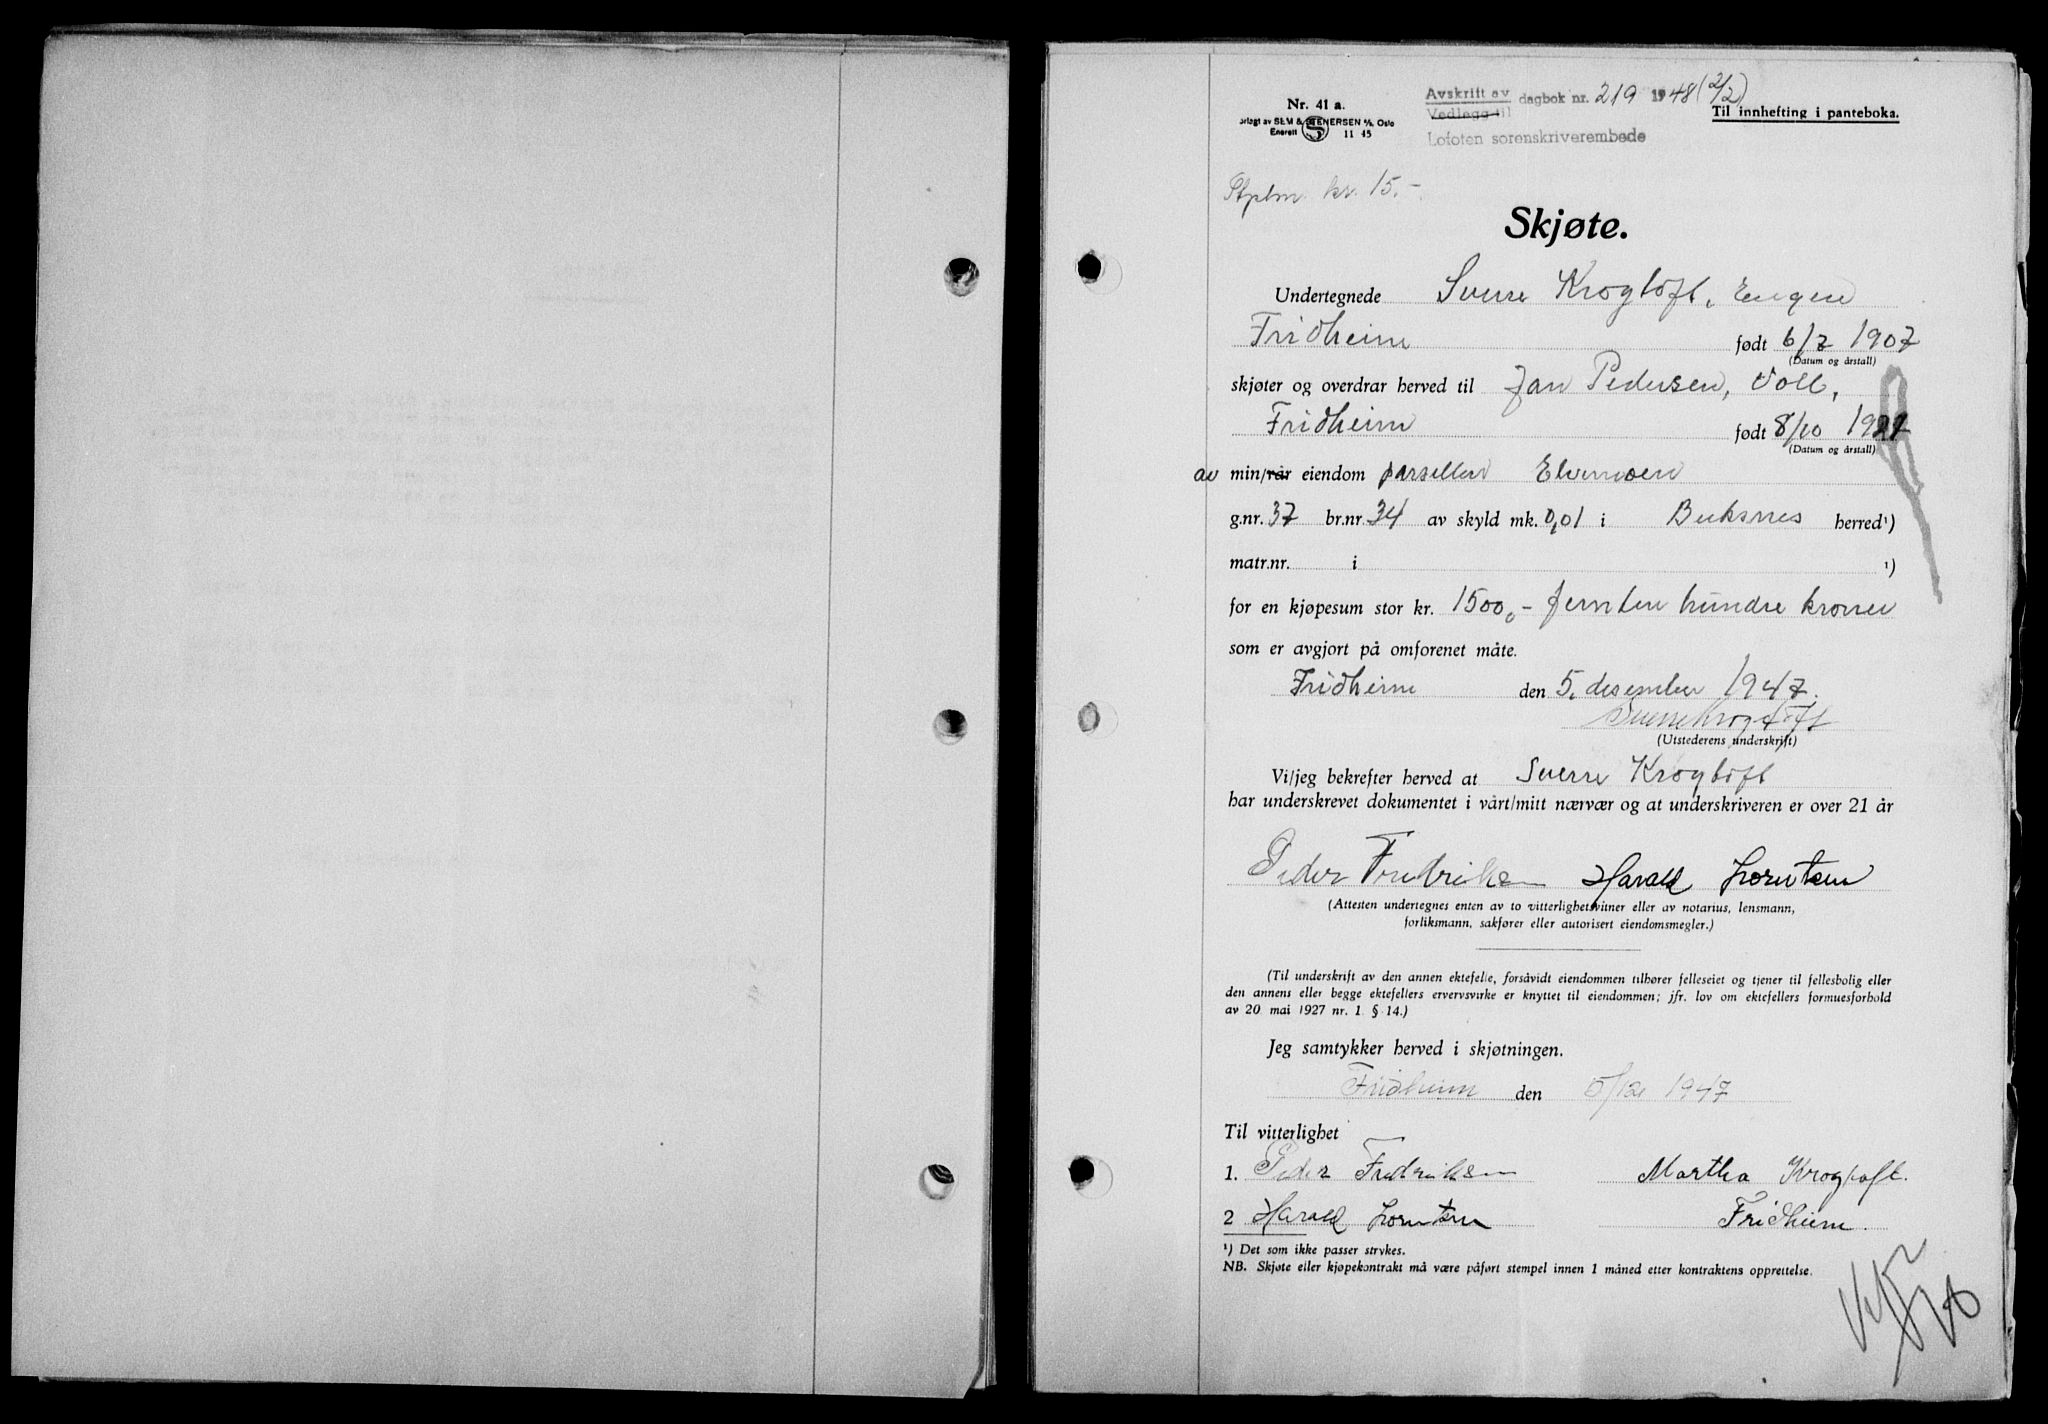 Nr. 41 a.
Forlagt av SEM & STENERSEN A/S, Oslo
Enerett S 11 45
Avskrift av
Vedlegg til dagbok nr. 219 1948 (2/2)
Lofoten sorenskriverembede
Til innhefting i panteboka.
Stplm. kr. 15.-
Skjøte.
Undertegnede Sverre Krogtoft, Engen
Fridheim født 6/7 1907
(Datum og årstall)
skjøter og overdrar herved til Jan Pedersen, Voll,
Fridheim født 8/10 1921
(Datum og årstall)
av min/vår eiendom parsellen Elvemoen
g.nr. 37 br.nr. 34 av skyld mk. 0,01 i Buksnes herred¹)
matr.nr. i ¹)
for en kjøpesum stor kr. 1500,- femten hundre kroner
som er avgjort på omforenet måte.
Fridheim den 5. desember 1947.
Sverre Krogtoft
(Utstederens underskrift)
Vi/jeg bekrefter herved at Sverre Krogtoft
har underskrevet dokumentet i vårt/mitt nærvær og at underskriveren er over 21 år
Peder Fredriksen Harald Lorntsen
(Attesten undertegnes enten av to vitterlighetsvitner eller av notarius, lensmann,
forliksmann, sakfører eller autorisert eiendomsmegler.)
(Til underskrift av den annen ektefelle, forsåvidt eiendommen tilhører felleseiet og tjener til fellesbolig eller
den annens eller begge ektefellers ervervsvirke er knyttet til eiendommen; jfr. lov om ektefellers formuesforhold
av 20 mai 1927 nr. 1 § 14.)
Jeg samtykker herved i skjøtningen.
Fridheim den 5/12 1947
Til vitterlighet
1. Peder Fredriksen Martha Krogtoft.
2 Harald Lorntsen Fridheim.
¹) Det som ikke passer strykes.
NB. Skjøte eller kjøpekontrakt må være påført stempel innen 1 måned etter kontraktens opprettelse.